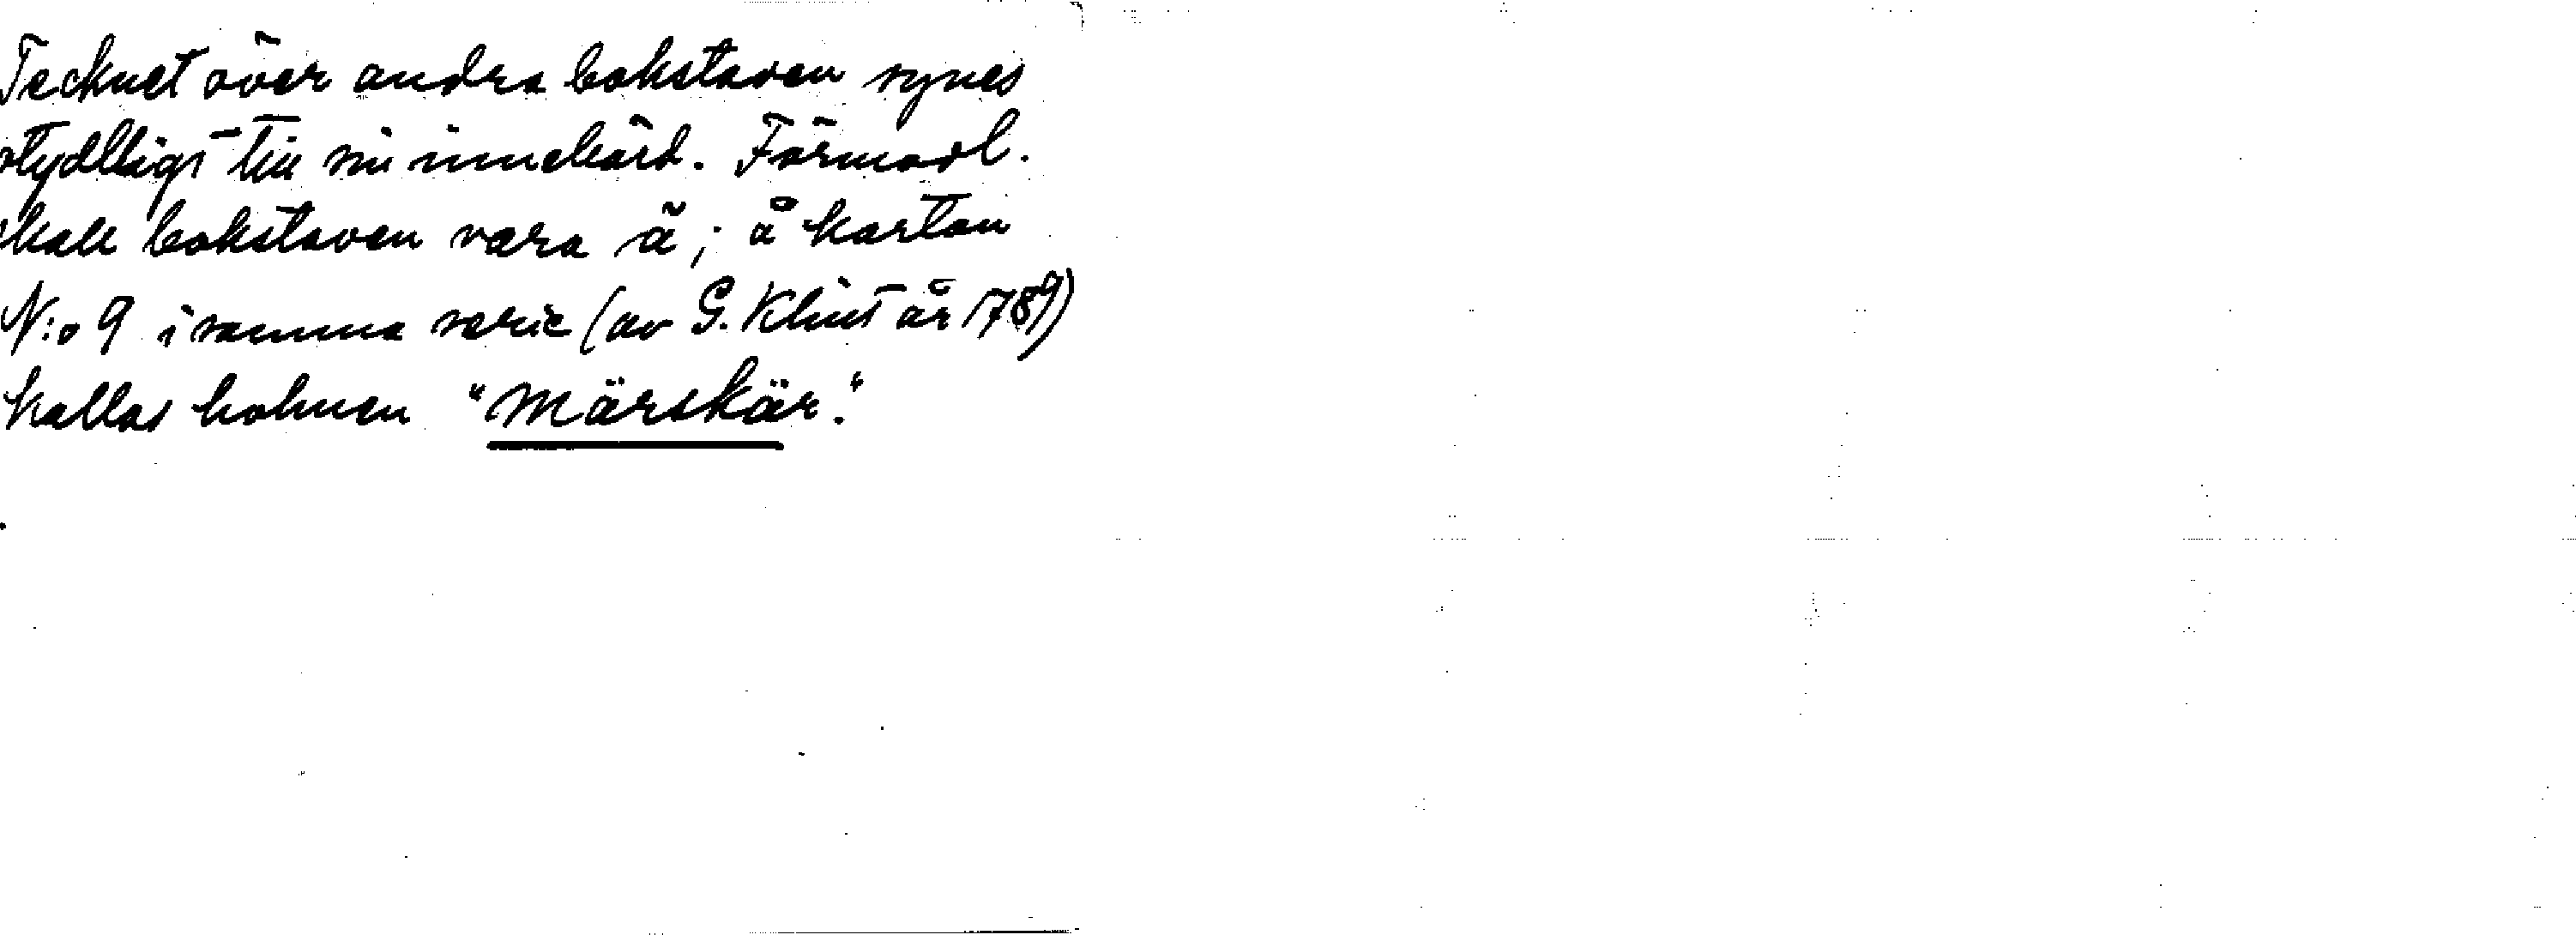 Tecknet över andra bokstaven synes
otydligt till sin innebörd. Förmodl.
skall bokstaven vara ä; å kartan
N:o 9 i samma serie (av G. Klint år 1789)
kallas holmen "Märskär."